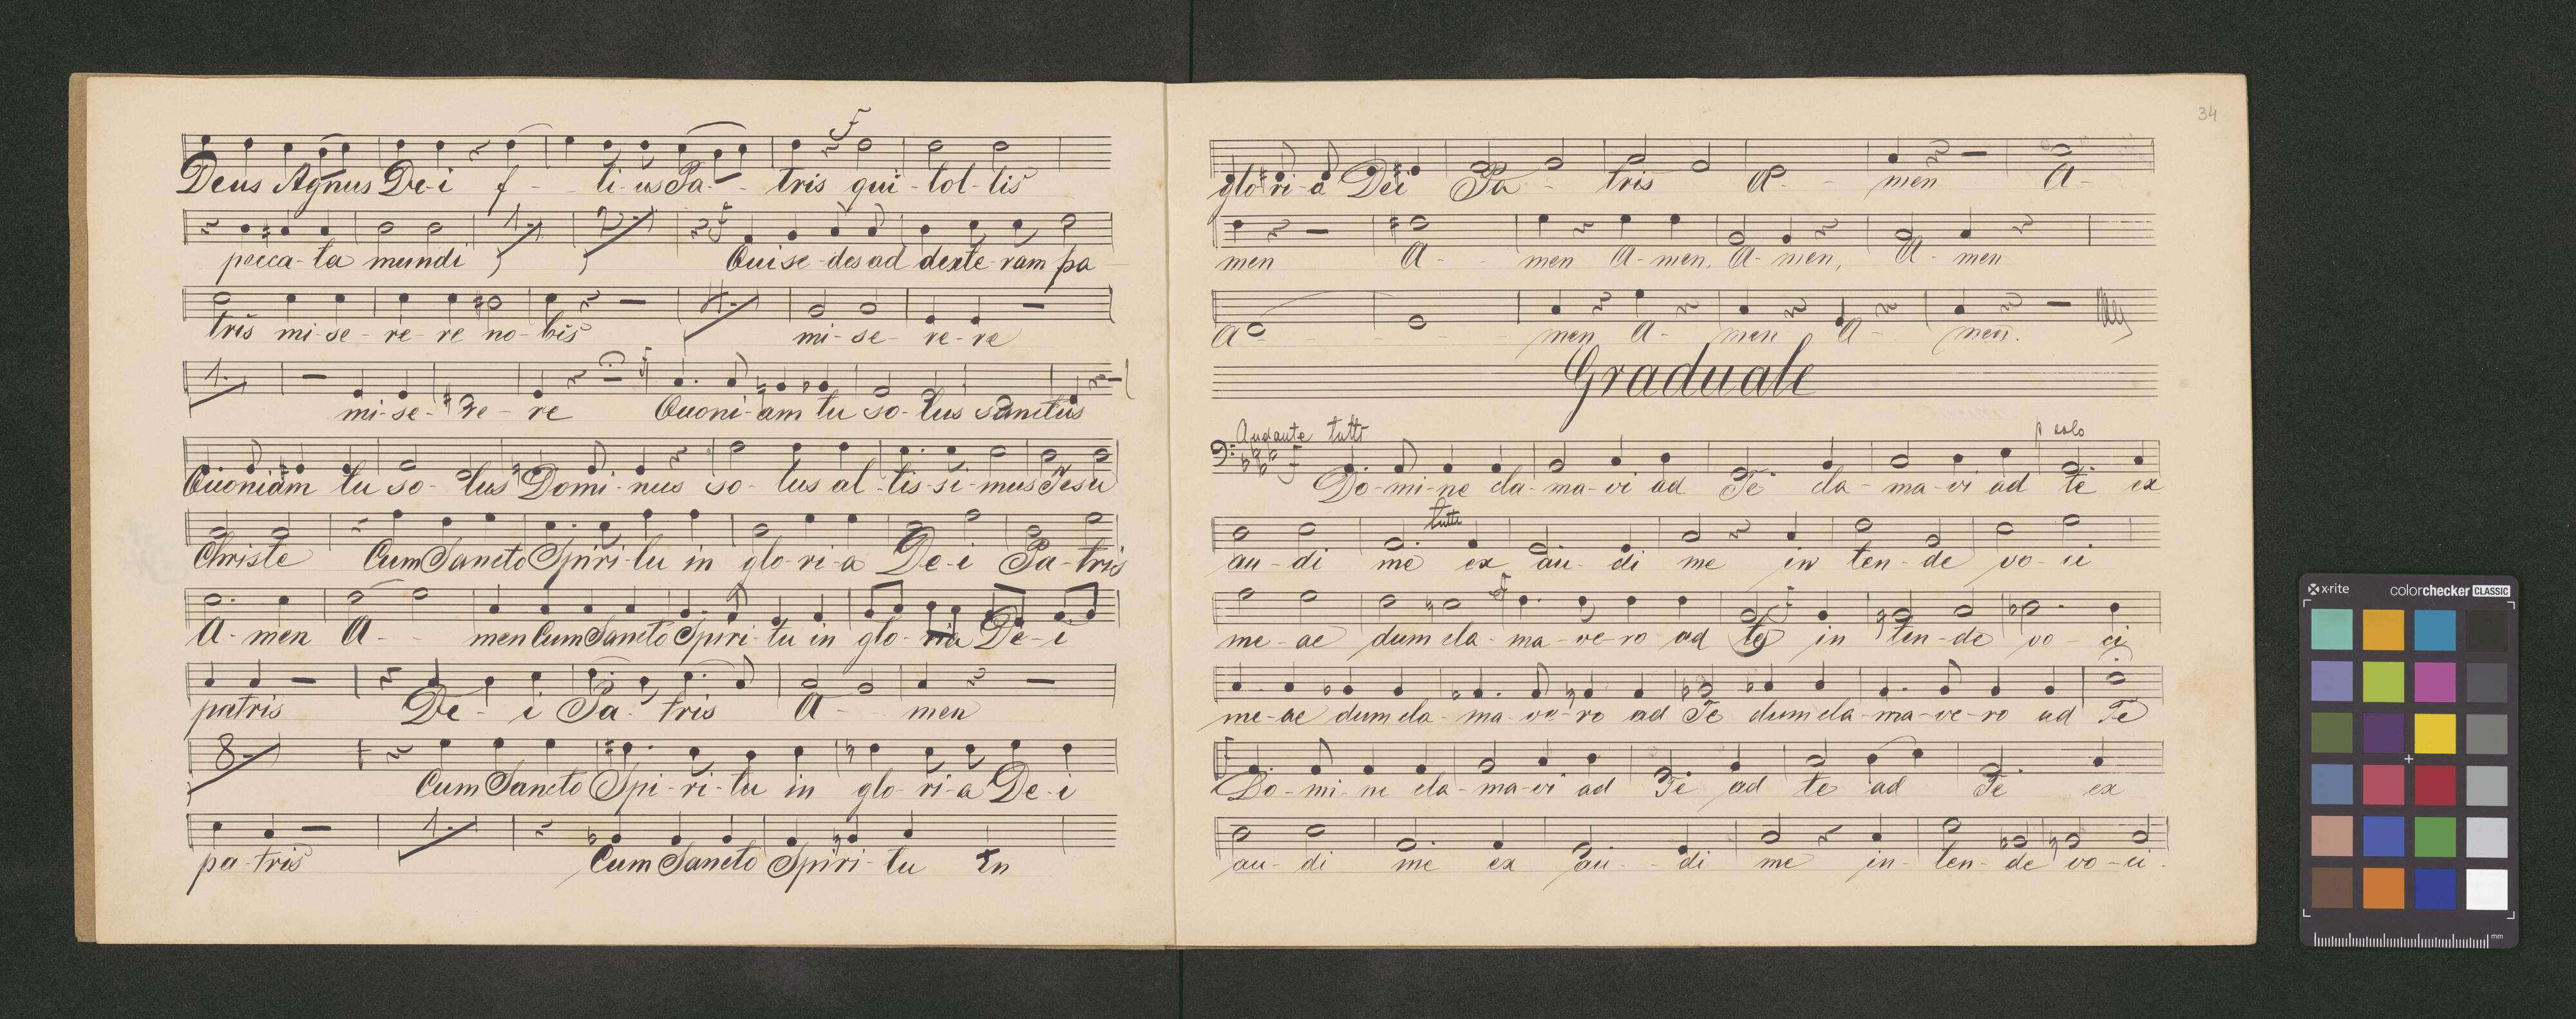 f
Deus Agnus De-i f- li-us Pa-- tris qui-tol-lis
1. 2.
pecca-ta mundi Qui se-des ad dexte-ram pa
4.
tris mi-se-re-re no-bis mi-se-re-re
1.
mi-se-re-re Quoni-am tu so-lus sanctus
Quoniam tu so-lus Domi-nus so-lus al-tis-si-mus Jesu
Christe Cum Sancto Spiri-tu in glo-ri-a De-i Pa-tris
A-men A-- men Cum Sancto Spiri-tu in glo-ria De-i
patris De-i Pa-tris A-- men
8.
Cum Sancto Spi-ri-tu in glo-ri-a De-i
1.
pa-tris Cum Sancto Spiri-tu In
34
glo-ri-a Dei Pa-- tris A-- men A-
men A-- men A-men, A-men, A-men
A---- men A-men A-- men.
Graduale
Andante tutti p solo
Do-mi-ne cla-ma-vi ad Te cla-ma-vi ad te ex
tutti
au-di me ex au-di me in ten-de vo-ci
me-ae dum cla-ma-ve-ro ad te in ten-de vo-ci
me-ae dum cla-ma-ve-ro ad Te dum cla-ma-ve-ro ad Te
Do-mi-ne cla-ma-vi ad Te ad te ad Te ex
au-di me ex au-di me in-ten-de vo-ci.
x-rite colorchecker CLASSIC
mm